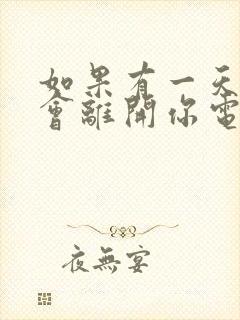 如果有一天
會離開你電
夜無宴